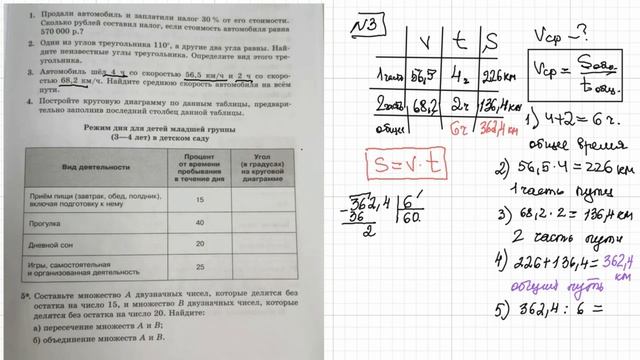 1. Продали автомобиль и заплатили налог 30 % от его стоимости.
Сколько рублей составил налог, если стоимость автомобиля равна
570 000 р.?
2. Один из углов треугольника 110°, а другие два угла равны. Най-
дите неизвестные углы треугольника. Определите вид этого тре-
угольника.
3. Автомобиль шёл 4 ч со скоростью 56,5 км/ч и 2 ч со ско-
ростью 68,2 км/ч. Найдите среднюю скорость автомобиля на всём
пути.
4. Постройте круговую диаграмму по данным таблицы, предвари-
тельно заполнив последний столбец данной таблицы.
Режим дня для детей младшей группы
(3—4 лет) в детском саду
Вид деятельности
Процент от времени пребывания в течение дня
Угол (в градусах) на круговой диаграмме
Приём пищи (завтрак, обед, полдник), включая подготовку к нему 15
Прогулка 40
Дневной сон 20
Игры, самостоятельная и организованная деятельность 25
5*. Составьте множество A двузначных чисел, которые делятся без
остатка на число 15, и множество B двузначных чисел, которые
делятся без остатка на число 20. Найдите:
а) пересечение множеств A и B;
б) объединение множеств A и B.
N3
V t S
1 часть 56,5 4ч 226 км
2 часть 68,2 2ч 136,4 км
общее 6ч 362,4 км
S = V · t
362,4 6
36 60
2
Vср - ?
Vср = Sобщ. / tобщ.
1) 4+2=6 ч.
общее время
2) 56,5 · 4 = 226 км
1 часть пути
3) 68,2 · 2 = 136,4 км
2 часть пути
4) 226+136,4=362,4
км
общий путь
5) 362,4 : 6 =